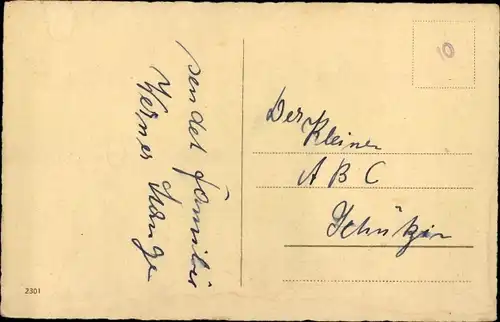 sendet Familie
Werner Lange
Der Kleinen
A B C
Schützin
10
2301